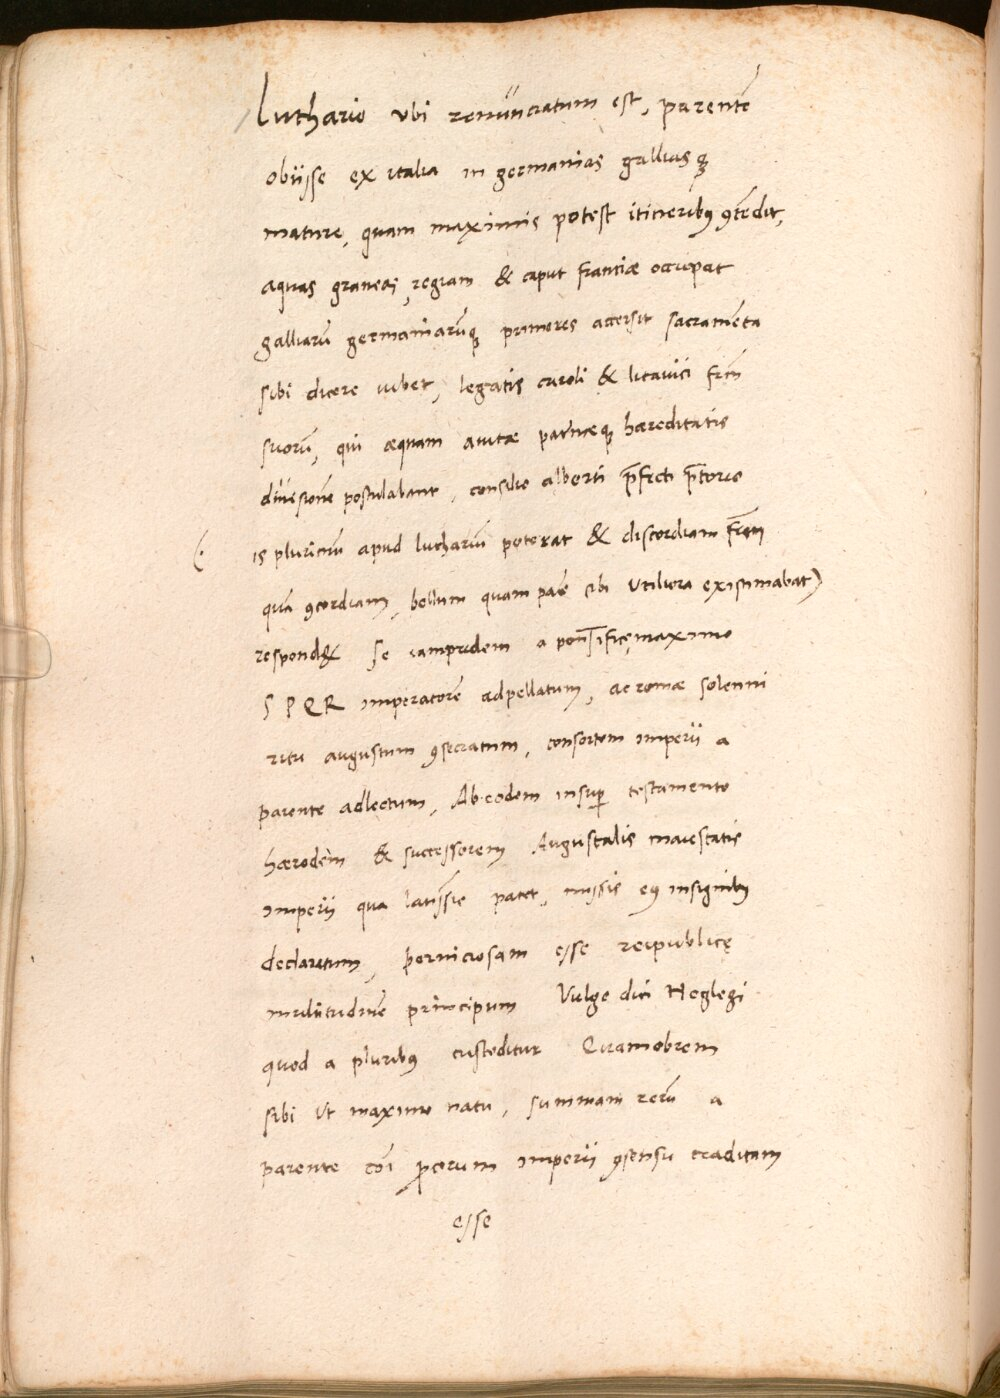 Luthario vbi renunciatum est, parentē
obiisse ex italia in germanias galliasqꝫ
mature, quam maximis potest itineribꝯ ꝯtēdit,
aquas graneas, regiam & caput frantiæ occupat
galliarū germaniarūqꝫ primores accersit sacramēta
sibi dicere iubet, legatis caroli & litauici frm̄
suorū, qui æquam auitæ patriæqꝫ hæreditatis
diuisionē postulabant, consilio alberti p̄fecti p̄torio
(. is plurimū apud lutharium poterat & discordiam fratrum
quā ꝯcordiam, bellum quam pacē sibi vtiliora existimabat)
respond& se iampridem a pontifice maximo
S P Q R imperatorē adpellatum, ac romæ solenni
ritu augustum ꝯsecratum, consortem imperii a
parente adlectum, Ab eodem insuꝑ testamento
hærodem & successorem Augustalis maiestatis
imperii qua latissīe patet, missis eiꝯ insignibꝯ
declaratum, perniciosam esse reipublicę
multitudinē principum Vulgo dici Neglegi
quod a pluribꝯ custoditur Quamobrem
sibi Vt maximo natu, summam rerū a
parente cōi procerum imperii ꝯsensu traditam
esse